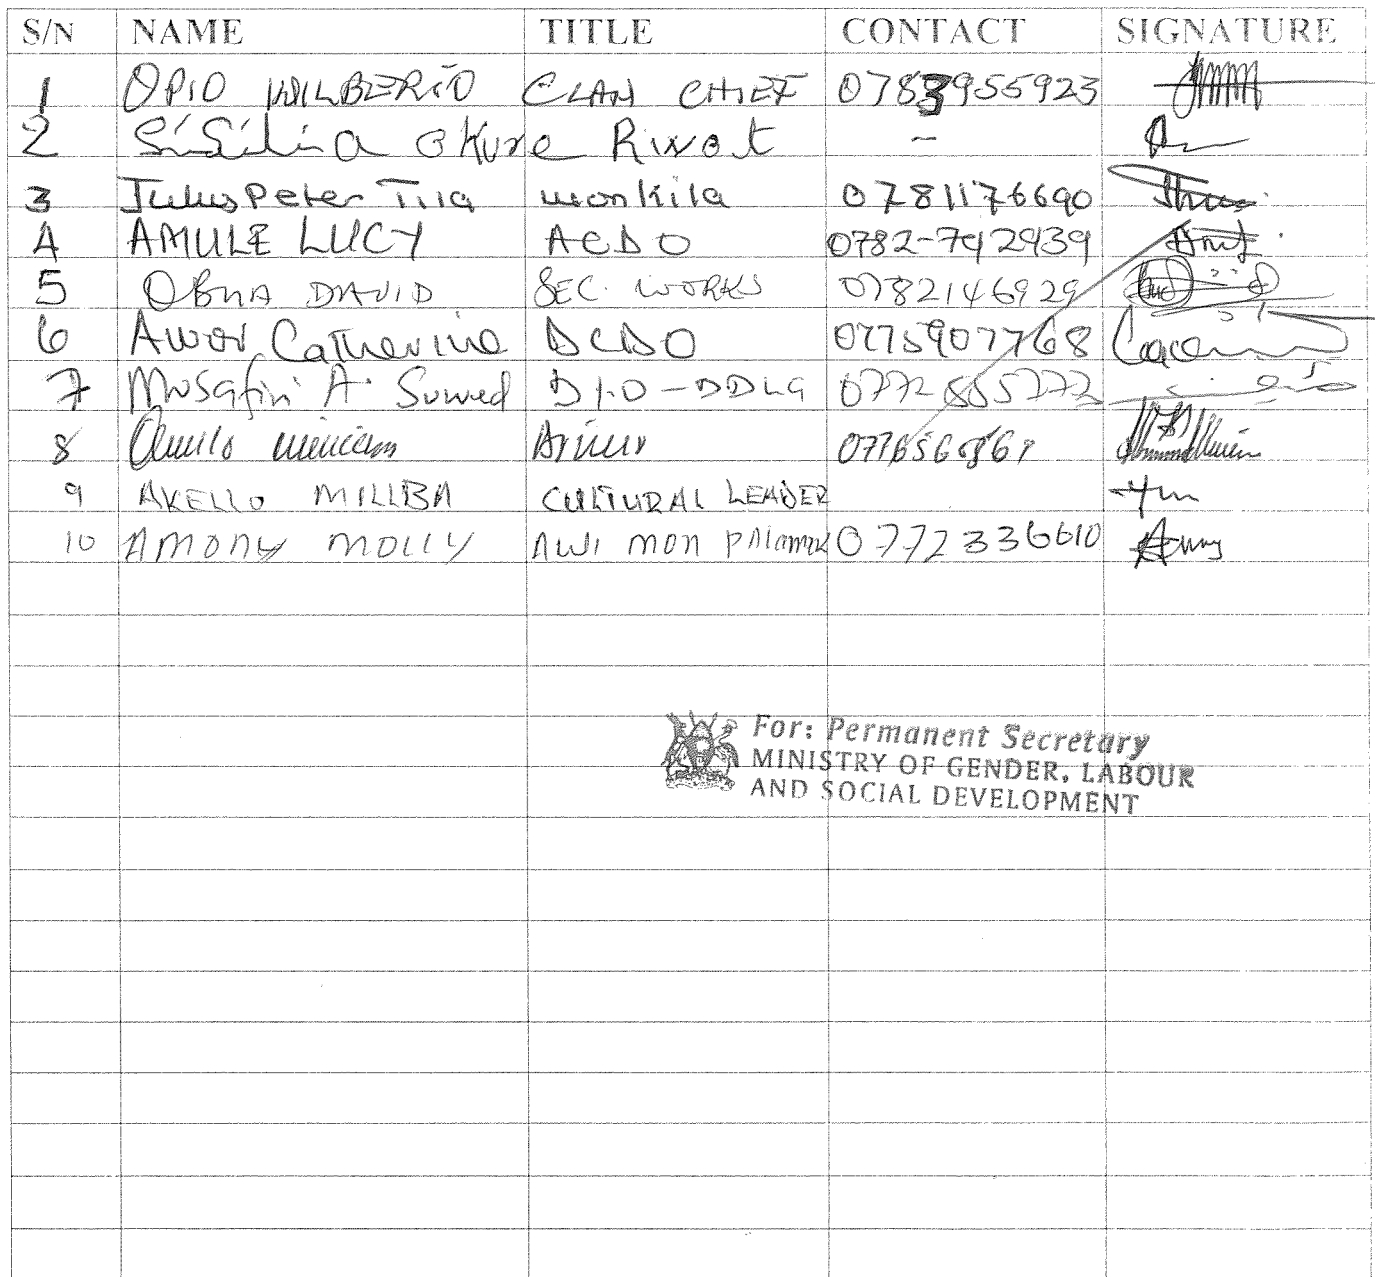 S/N NAME TITLE CONTACT SIGNATURE
1 OPIO WILBERIO CLAN CHIEF 0783955923
2 SiSilia okure Rwot –
3 Julius Peter Tila wonkila 0781176690
4 AMULE LUCY ACDO 0782-742939
5 OBUA DAVID SEC. WORKS 0782146929
6 Awor Catherine DCDO 0775907768
7 Musafiri A. Suwed DIO-DDLG 0772
8
9 AKELLO MILLBA CULTURAL LEADER
10 AMONY MOLLY AWI MON 0772336610
For: Permanent Secretary
MINISTRY OF GENDER, LABOUR
AND SOCIAL DEVELOPMENT